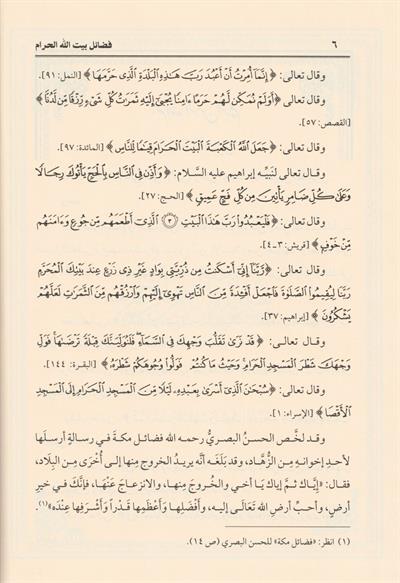 ٦ فضائل بيت الله الحرام
وقال تعالى: ﴿إِنَّمَآ أُمِرْتُ أَنْ أَعْبُدَ رَبَّ هَٰذِهِ ٱلْبَلْدَةِ ٱلَّذِى حَرَّمَهَا﴾ [النمل: ٩١].
وقال تعالى: ﴿أَوَلَمْ نُمَكِّن لَّهُمْ حَرَمًا ءَامِنًا يُجْبَىٰٓ إِلَيْهِ ثَمَرَٰتُ كُلِّ شَىْءٍ رِّزْقًا مِّن لَّدُنَّا﴾
[القصص: ٥٧].
وقال تعالى: ﴿جَعَلَ ٱللَّهُ ٱلْكَعْبَةَ ٱلْبَيْتَ ٱلْحَرَامَ قِيَٰمًا لِّلنَّاسِ﴾ [المائدة: ٩٧].
وقال تعالى لنبيِّه إبراهيم عليه السلام: ﴿وَأَذِّن فِى ٱلنَّاسِ بِٱلْحَجِّ يَأْتُوكَ رِجَالًا
وَعَلَىٰ كُلِّ ضَامِرٍ يَأْتِينَ مِن كُلِّ فَجٍّ عَمِيقٍ﴾ [الحج: ٢٧].
وقال تعالى: ﴿فَلْيَعْبُدُوا۟ رَبَّ هَٰذَا ٱلْبَيْتِ ۝٣ ٱلَّذِىٓ أَطْعَمَهُم مِّن جُوعٍ وَءَامَنَهُم
مِّنْ خَوْفٍۭ﴾ [قريش: ٣-٤].
وقال تعالى: ﴿رَّبَّنَآ إِنِّىٓ أَسْكَنتُ مِن ذُرِّيَّتِى بِوَادٍ غَيْرِ ذِى زَرْعٍ عِندَ بَيْتِكَ ٱلْمُحَرَّمِ
رَبَّنَا لِيُقِيمُوا۟ ٱلصَّلَوٰةَ فَٱجْعَلْ أَفْـِٔدَةً مِّنَ ٱلنَّاسِ تَهْوِىٓ إِلَيْهِمْ وَٱرْزُقْهُم مِّنَ ٱلثَّمَرَٰتِ لَعَلَّهُمْ
يَشْكُرُونَ﴾ [إبراهيم: ٣٧].
وقال تعالى: ﴿قَدْ نَرَىٰ تَقَلُّبَ وَجْهِكَ فِى ٱلسَّمَآءِ ۖ فَلَنُوَلِّيَنَّكَ قِبْلَةً تَرْضَىٰهَا ۚ فَوَلِّ
وَجْهَكَ شَطْرَ ٱلْمَسْجِدِ ٱلْحَرَامِ ۚ وَحَيْثُ مَا كُنتُمْ فَوَلُّوا۟ وُجُوهَكُمْ شَطْرَهُۥ﴾ [البقرة: ١٤٤].
وقال تعالى: ﴿سُبْحَٰنَ ٱلَّذِىٓ أَسْرَىٰ بِعَبْدِهِۦ لَيْلًا مِّنَ ٱلْمَسْجِدِ ٱلْحَرَامِ إِلَى ٱلْمَسْجِدِ
ٱلْأَقْصَا﴾ [الإسراء: ١].
وقد لخَّص الحسنُ البصريُّ رحمه الله فضائل مكة في رسالةٍ أرسلها
لأحدِ إخوانه مِن الزُّهاد، وقد بلغَه أنَّه يريدُ الخروج منها إلى أُخرَى مِن البِلاد،
فقال: «إيَّاك ثم إياك يا أخي والخُروجَ منها، والانزعاجَ عَنْهَا، فإنَّكَ في خيرِ
أرضٍ، وأحبِّ أرضِ الله تَعَالَى إليه، وأفضَلِها وأعظَمِها قَدْراً وأشرَفِها عندَه»(١)
(١) انظر: «فضائل مكة» للحسن البصري (ص ١٤).